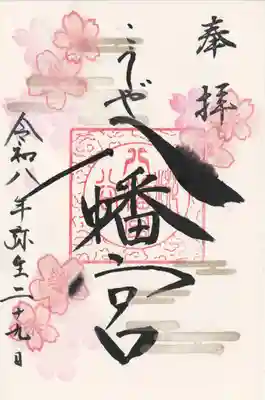 奉拝
こうじや
八幡宮
令和八年弥生二十九日